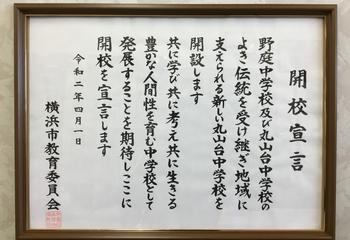 開校宣言
野庭中学校及び丸山台中学校の
よき伝統を受け継ぎ地域に
支えられる新しい丸山台中学校を
開設します
共に学び共に考え共に生きる
豊かな人間性を育む中学校として
発展することを期待しここに
開校を宣言します
令和二年四月一日
横浜市教育委員会